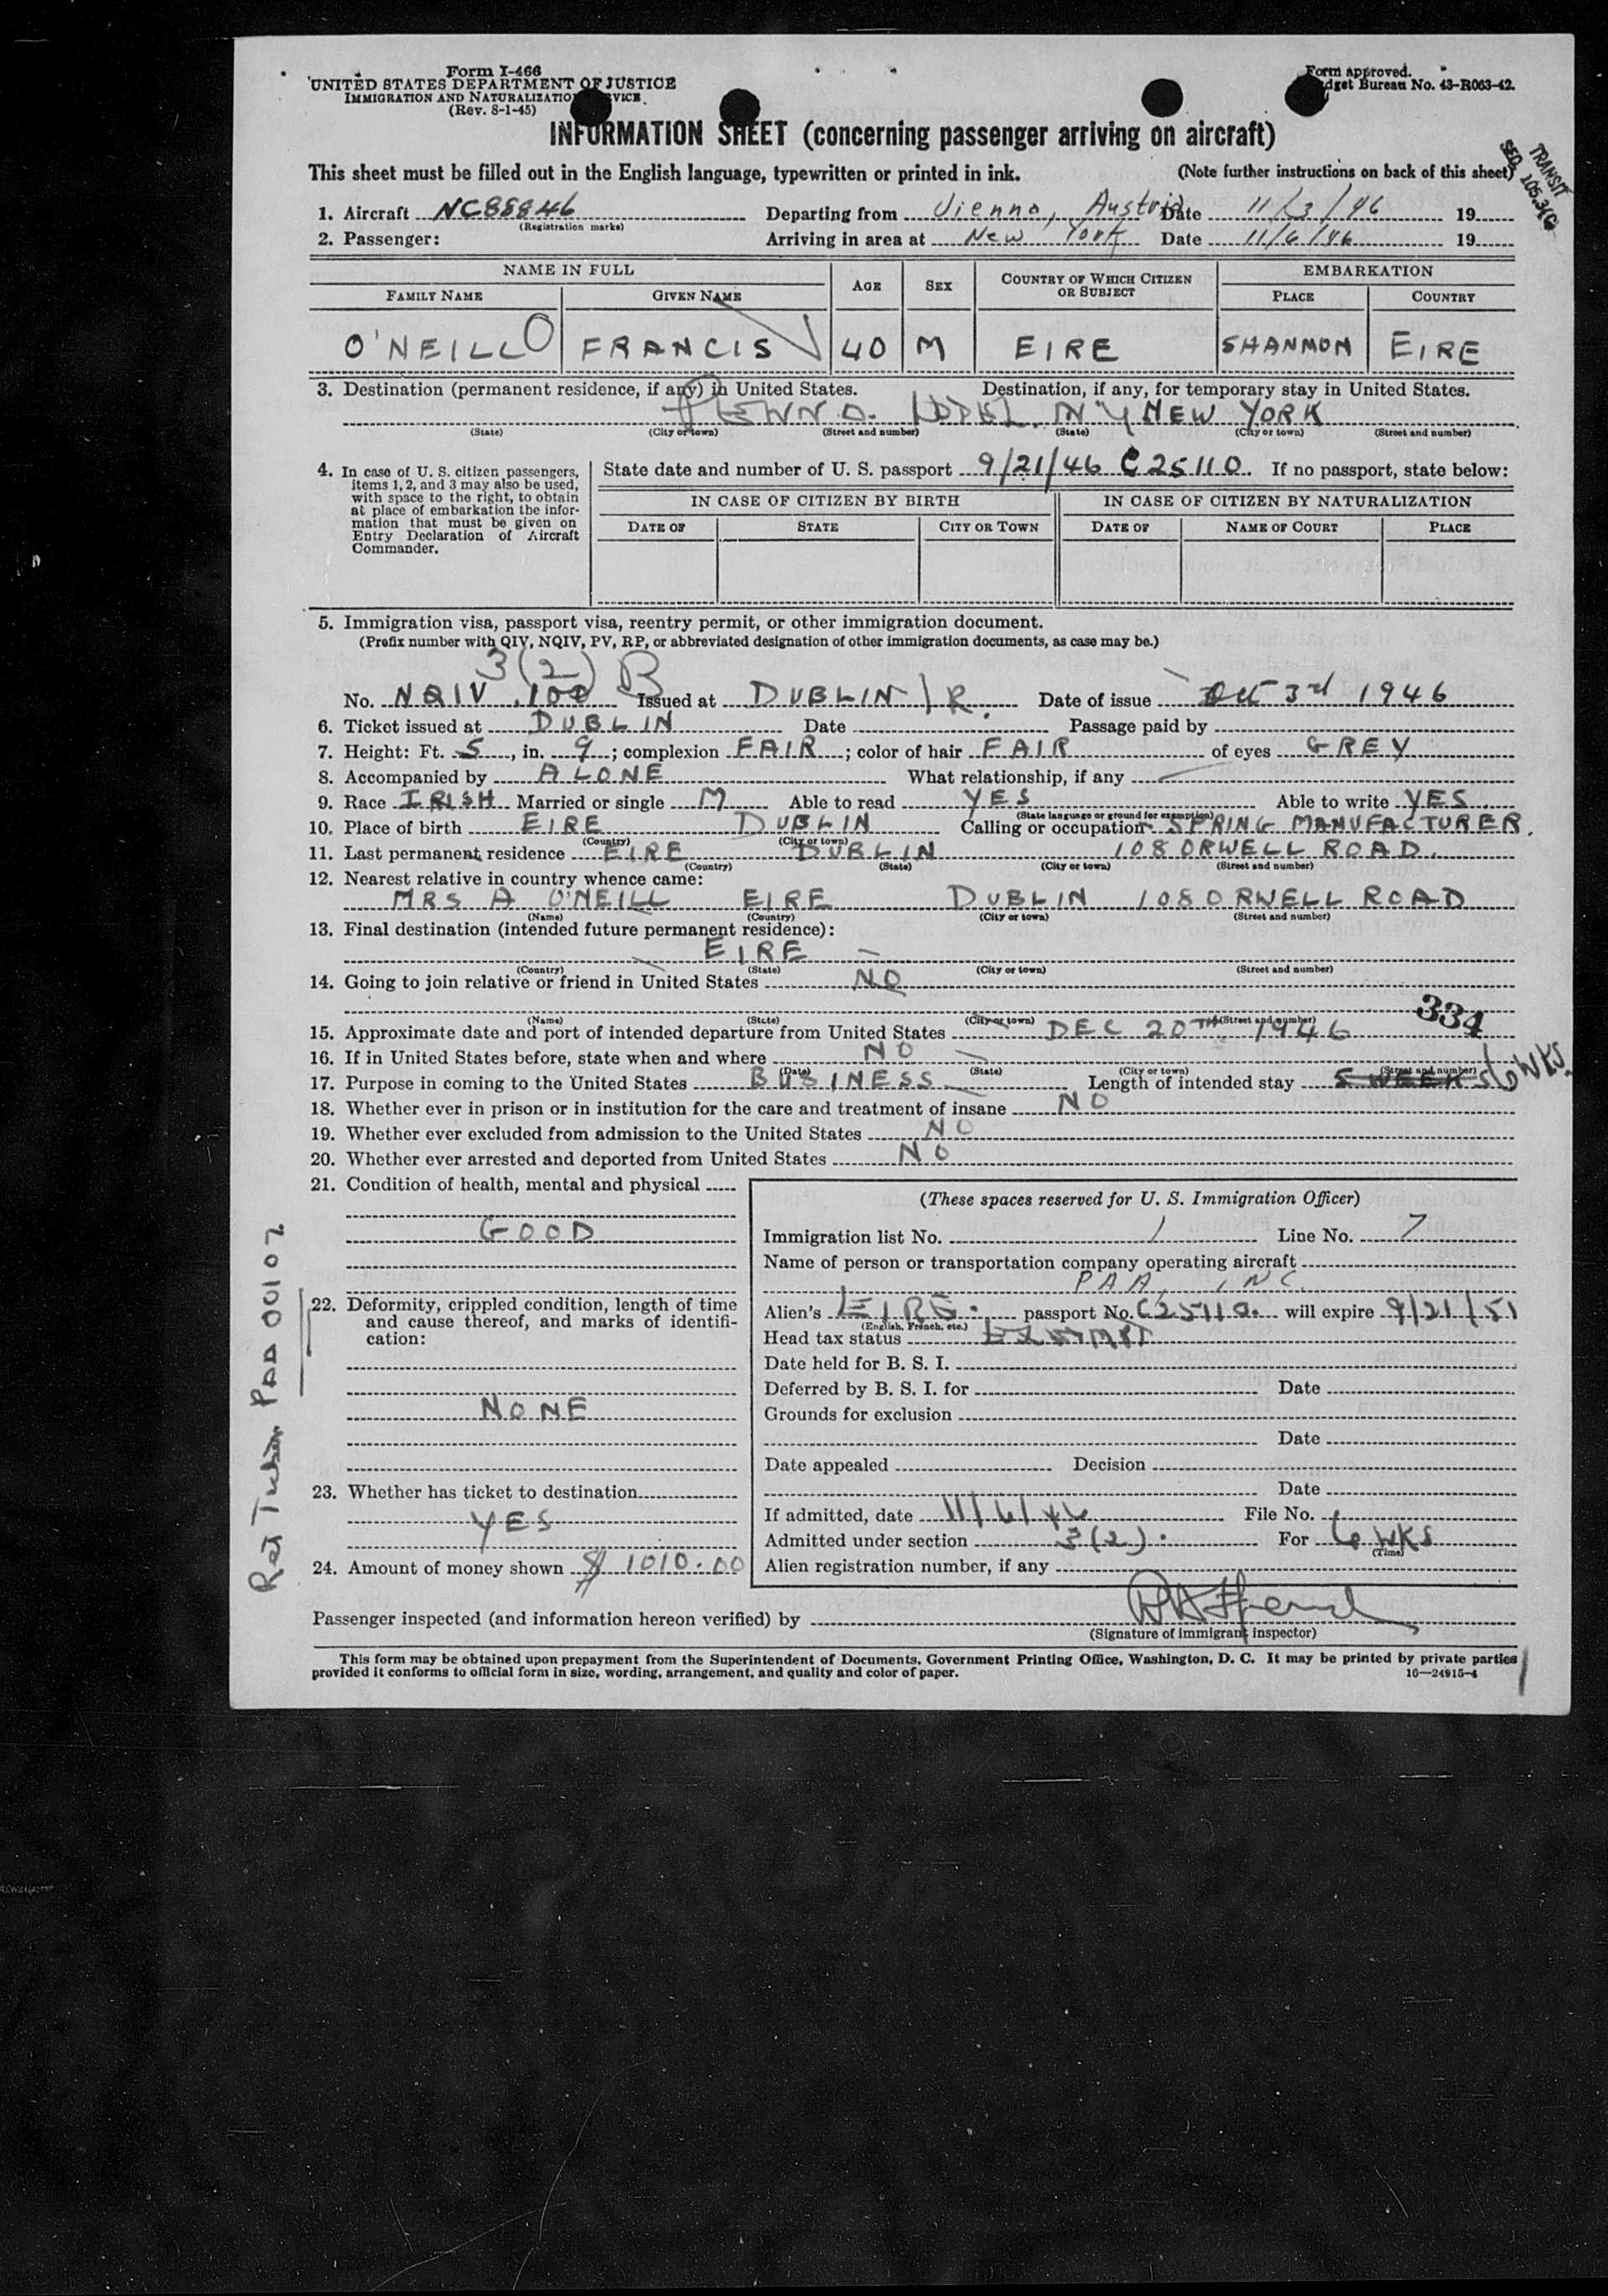 Form I-466
UNITED STATES DEPARTMENT OF JUSTICE
IMMIGRATION AND NATURALIZATION SERVICE
(Rev. 8-1-45)
Form approved.
Budget Bureau No. 43-R063-42.
INFORMATION SHEET (concerning passenger arriving on aircraft)
TRANSIT
SEC. 105.3(G)
This sheet must be filled out in the English language, typewritten or printed in ink. (Note further instructions on back of this sheet)
1. Aircraft NC88846 Departing from Vienna, Austria Date 11/3/46 19
(Registration marks)
2. Passenger: Arriving in area at New York Date 11/6/46 19
NAME IN FULL AGE SEX COUNTRY OF WHICH CITIZEN OR SUBJECT EMBARKATION
FAMILY NAME GIVEN NAME PLACE COUNTRY
O'NEILL FRANCIS 40 M EIRE SHANNON EIRE
3. Destination (permanent residence, if any) in United States. Destination, if any, for temporary stay in United States.
PENNA. HOTEL N.Y NEW YORK
(State) (City or town) (Street and number) (State) (City or town) (Street and number)
4. In case of U. S. citizen passengers,
items 1, 2, and 3 may also be used,
with space to the right, to obtain
at place of embarkation the infor-
mation that must be given on
Entry Declaration of Aircraft
Commander.
State date and number of U. S. passport 9/21/46 C25110. If no passport, state below:
IN CASE OF CITIZEN BY BIRTH IN CASE OF CITIZEN BY NATURALIZATION
DATE OF STATE CITY OR TOWN DATE OF NAME OF COURT PLACE
5. Immigration visa, passport visa, reentry permit, or other immigration document.
(Prefix number with QIV, NQIV, PV, RP, or abbreviated designation of other immigration documents, as case may be.)
3(2) B
No. NQIV .100 Issued at DUBLIN / R. Date of issue Oct 3rd 1946
6. Ticket issued at DUBLIN Date Passage paid by
7. Height: Ft. 5, in. 9; complexion FAIR; color of hair FAIR of eyes GREY
8. Accompanied by ALONE What relationship, if any
9. Race IRISH Married or single M Able to read YES Able to write YES.
(State language or ground for exemption)
10. Place of birth EIRE DUBLIN Calling or occupation SPRING MANUFACTURER.
(Country) (City or town)
11. Last permanent residence EIRE DUBLIN 108 ORWELL ROAD.
(Country) (State) (City or town) (Street and number)
12. Nearest relative in country whence came:
MRS A O'NEILL EIRE DUBLIN 108 ORWELL ROAD
(Name) (Country) (City or town) (Street and number)
13. Final destination (intended future permanent residence):
EIRE
(Country) (State) (City or town) (Street and number)
14. Going to join relative or friend in United States NO
334
(Name) (State) (City or town) (Street and number)
15. Approximate date and port of intended departure from United States DEC 20TH 1946
16. If in United States before, state when and where NO
(Date) (State) (City or town) (Street and number)
17. Purpose in coming to the United States BUSINESS Length of intended stay 5 WEEKS 6 WKS.
18. Whether ever in prison or in institution for the care and treatment of insane NO
19. Whether ever excluded from admission to the United States NO
20. Whether ever arrested and deported from United States NO
21. Condition of health, mental and physical
GOOD
22. Deformity, crippled condition, length of time
and cause thereof, and marks of identifi-
cation:
NONE
23. Whether has ticket to destination
YES
24. Amount of money shown $1010.00
(These spaces reserved for U. S. Immigration Officer)
Immigration list No. 1 Line No. 7
Name of person or transportation company operating aircraft
PAA, INC.
Alien's EIRE. passport No. C25110. will expire 9/21/51
(English, French, etc.)
Head tax status EXEMPT
Date held for B. S. I.
Deferred by B. S. I. for Date
Grounds for exclusion
Date
Date appealed Decision
Date
If admitted, date 11/6/46 File No.
Admitted under section 3(2). For 6 WKS
(Time)
Alien registration number, if any
Passenger inspected (and information hereon verified) by
(Signature of immigrant inspector)
This form may be obtained upon prepayment from the Superintendent of Documents, Government Printing Office, Washington, D. C. It may be printed by private parties
provided it conforms to official form in size, wording, arrangement, and quality and color of paper. 16—24915-4
Ret PAA 00107